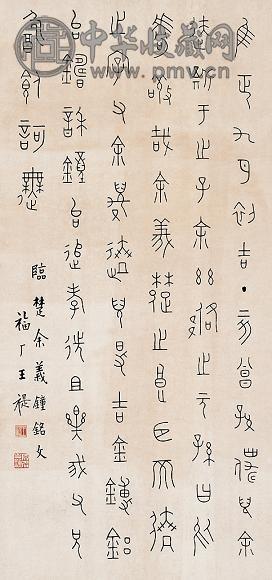 中华收藏网
www.pmw.cn
隹正九月初吉丁亥曾孫僕兒余
達斯于之子余茲佫之元孫曰於
嘑敬哉余義楚之良臣而逨
之字父余賸逨兒得吉金鎛鋁
台鑄訸鐘台追孝先且樂我父兄
飲飤訶舞
臨楚余義鐘銘文
福厂王禔